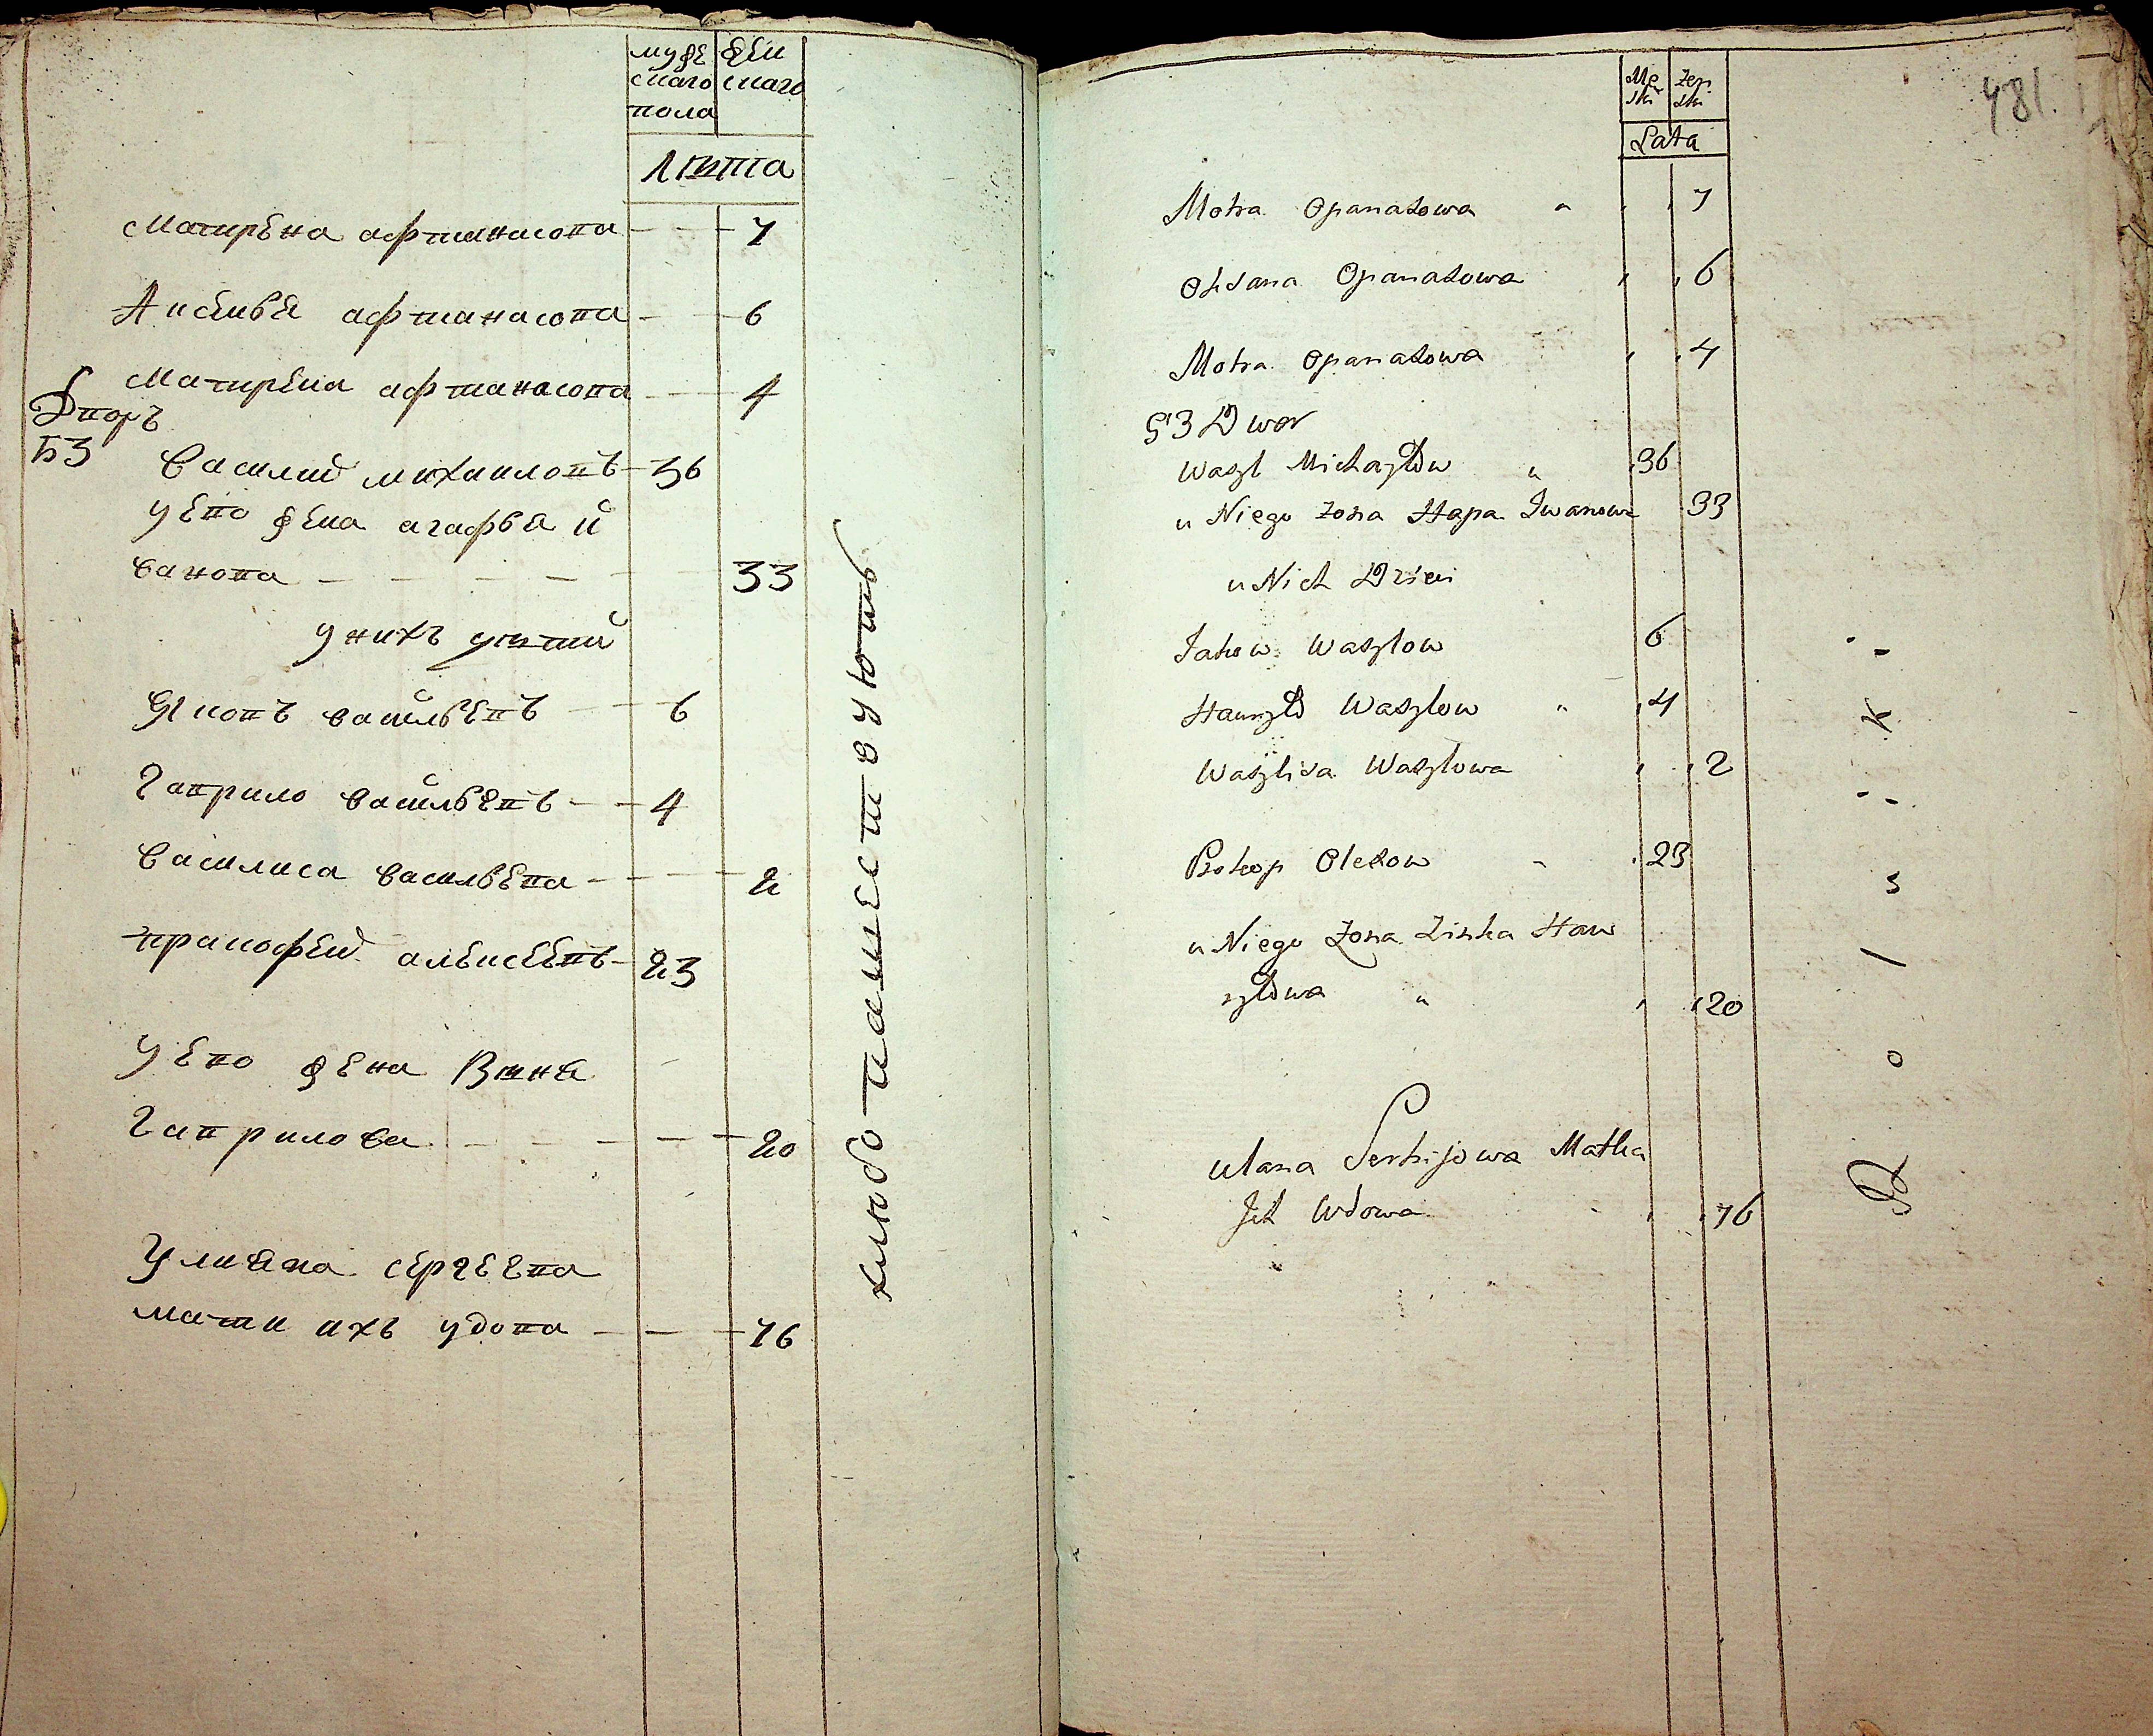 муже жен
скаго скаго
пола
лѣта
Матирена афтанасова 7
Аксинья афтанасова 6
Матирена афтанасова 4
Дворъ
53 Василий михаиловъ 36
у ево жена агафья и
ванова 33
у нихъ дѣтий
Яковъ васильевъ 6
Гаврило васильевъ 4
Василиса васильева 2
пракофей алексеевъ 23
у ево жена Зинья
Гаврилова 20
Улияна сергеева
мати ихъ удова 76
хлебопашествують
481
Mę zen
ski ski
Lata
Motra Opanasowa 7
Oksana Opanasowa 6
Motra Opanasowa 4
53 Dwor
Wasyl Michayłow 36
u Niego Zona Hapa Iwanowa 33
u Nich Dzieci
Jakow Wasylow 6
Hawryło Wasylow 4
Wasylisa Wasylowa 2
Prokop Olexow 23
u Niego Zona Zinka Haw
ryłowa 20
Ulana Serhijowa Matka
Ich Wdowa 76
Rolski